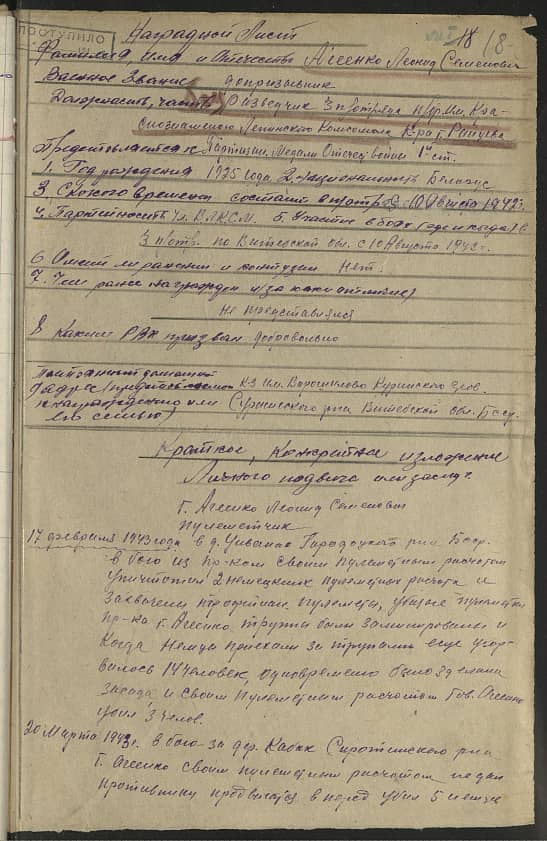 ПОСТУПИЛО
18 18
Наградной Лист
Фамилия, имя и Отчество Агеенко Леонид Семенович
Военное Звание допризывник
Должность, часть Разведчик 3 п/отряда п/бр. им. Кра-
снознаменного Ленинского Комсомола
Представляется к Партизан. Медали Отечест. войны 1й ст.
1. Год рождения 1925 года 2. национальность Беларус
3. С какого времени состоит в 10 Августа 1942 г.
4. Партийность чл. ВЛКСМ. 5. Участие в боях (где и когда) в
3 п/отр. по Витебской обл. с 10 Августа 1942 г.
6 Имеет ли ранения и контузии Нет.
7. Чем ранее награжден (за какие отличия)
Не представлялся
8 Каким РВК призван добровольно
Постоянный домашний
адрес (представляемого К-З им. Ворошилова Куринского с/сов.
к награждению или Суражского р-на Витебской обл. БССР.
его семьи)
Краткое, Конкретное изложение
Личного подвига или заслуг
Т. Агеенко Леонид Семенович
пулеметчик
17 февраля 1943 года в д. Городоцкого р-на БССР.
в бою из пр-ком своим пулеметным расчетом
уничтожил 2 немецких пулеметных расчета и
захвачены трофейные пулеметы, убитые пулеметчики
пр-ка т. Агеенко трупы были заминированы и
когда немцы приехали за трупами еще
14 человек, одновременно было сделана
засада и своим пулеметным расчетом тов. Агеенко
убил 3 челов.
20 Марта 1943 г. в бою за дер. Сиротинского р-на
Т. Агеенко своим пулеметным расчетом не дал
противнику продвигатся в перед убил 5 немцев